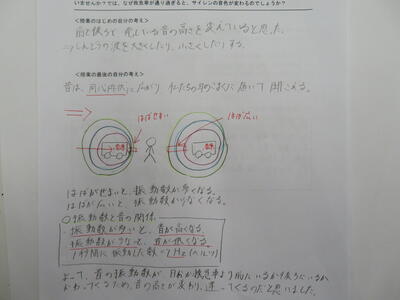 いませんか？では、なぜ救急車が通り過ぎると、サイレンの音色が変わるのでしょうか？
＜授業のはじめの自分の考え＞
前と後ろで 出している音の高さを 変えていると思った。
→しんどうの波を大きくしたり、小さくしたりする。
＜授業の最後の自分の考え＞
音は、同心円状に広がり 私たちの耳の
聞こえる。
はばせまい
はば広い
はばがせまいと、振動数が多くなる。
はばが広いと、振動数が少なくなる。
○振動数と音の関係
振動数が多いと、音が高くなる。
振動数が少ないと、音が低くなる。
1秒間に振動した数でHz(ヘルツ)
よって、音の振動数が
より前にいるか後ろにいるか
かわってくるため、音の高さが変わり、違ってくるのだと思いました。